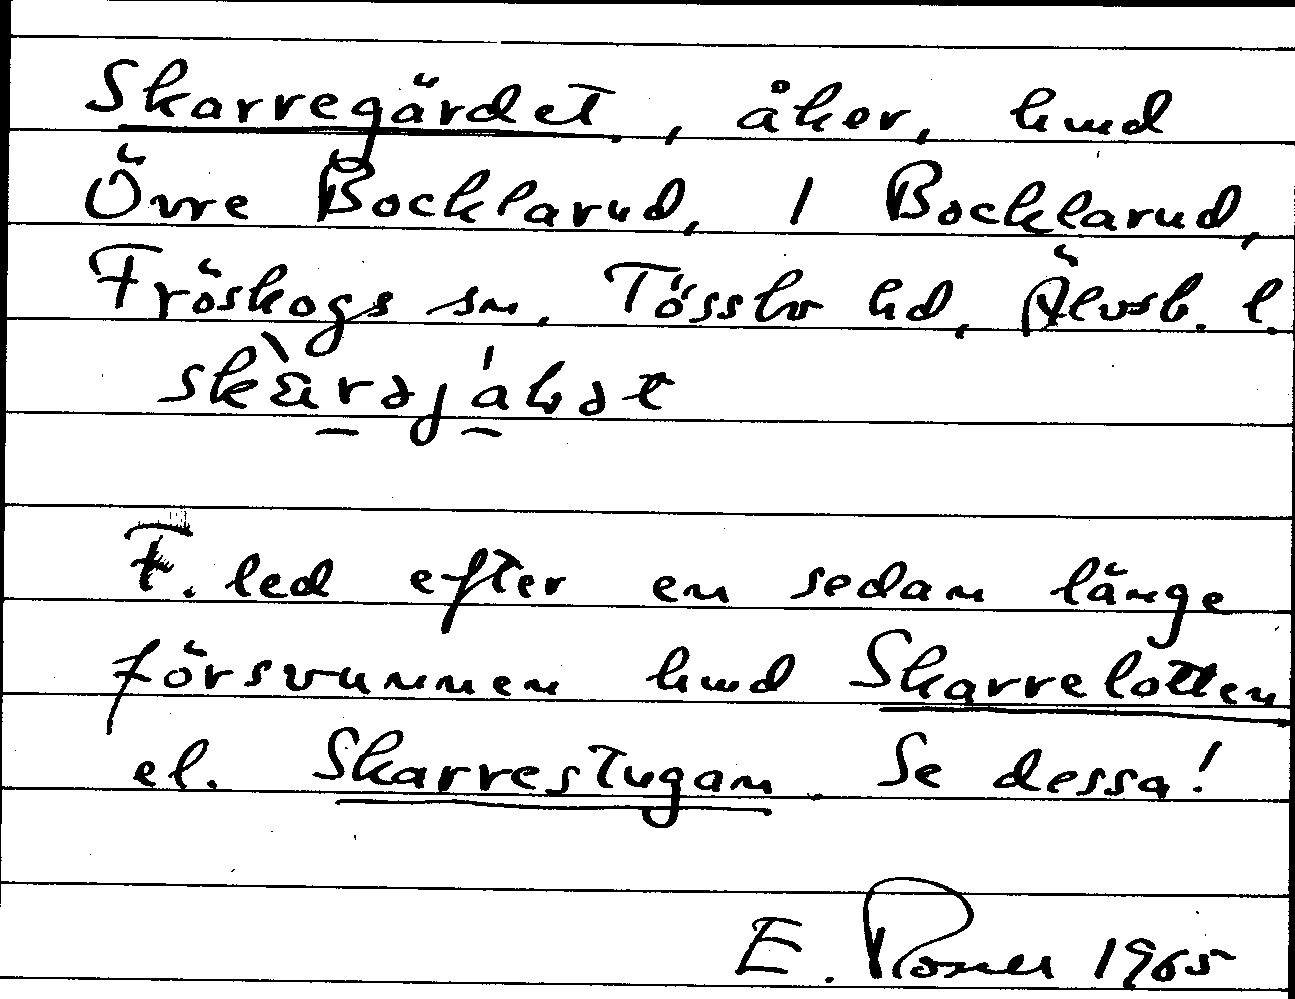 Skarregärdet, åker, hmd
Övre Bocklarud, 1 Bocklarud,
Fröskogs sn, Tössbo hd, Älvsb. l.
F. led efter en sedan länge
försvunnen hmd Skarrelotten
el. Skarrestugan. Se dessa!
E. Rosell 1965